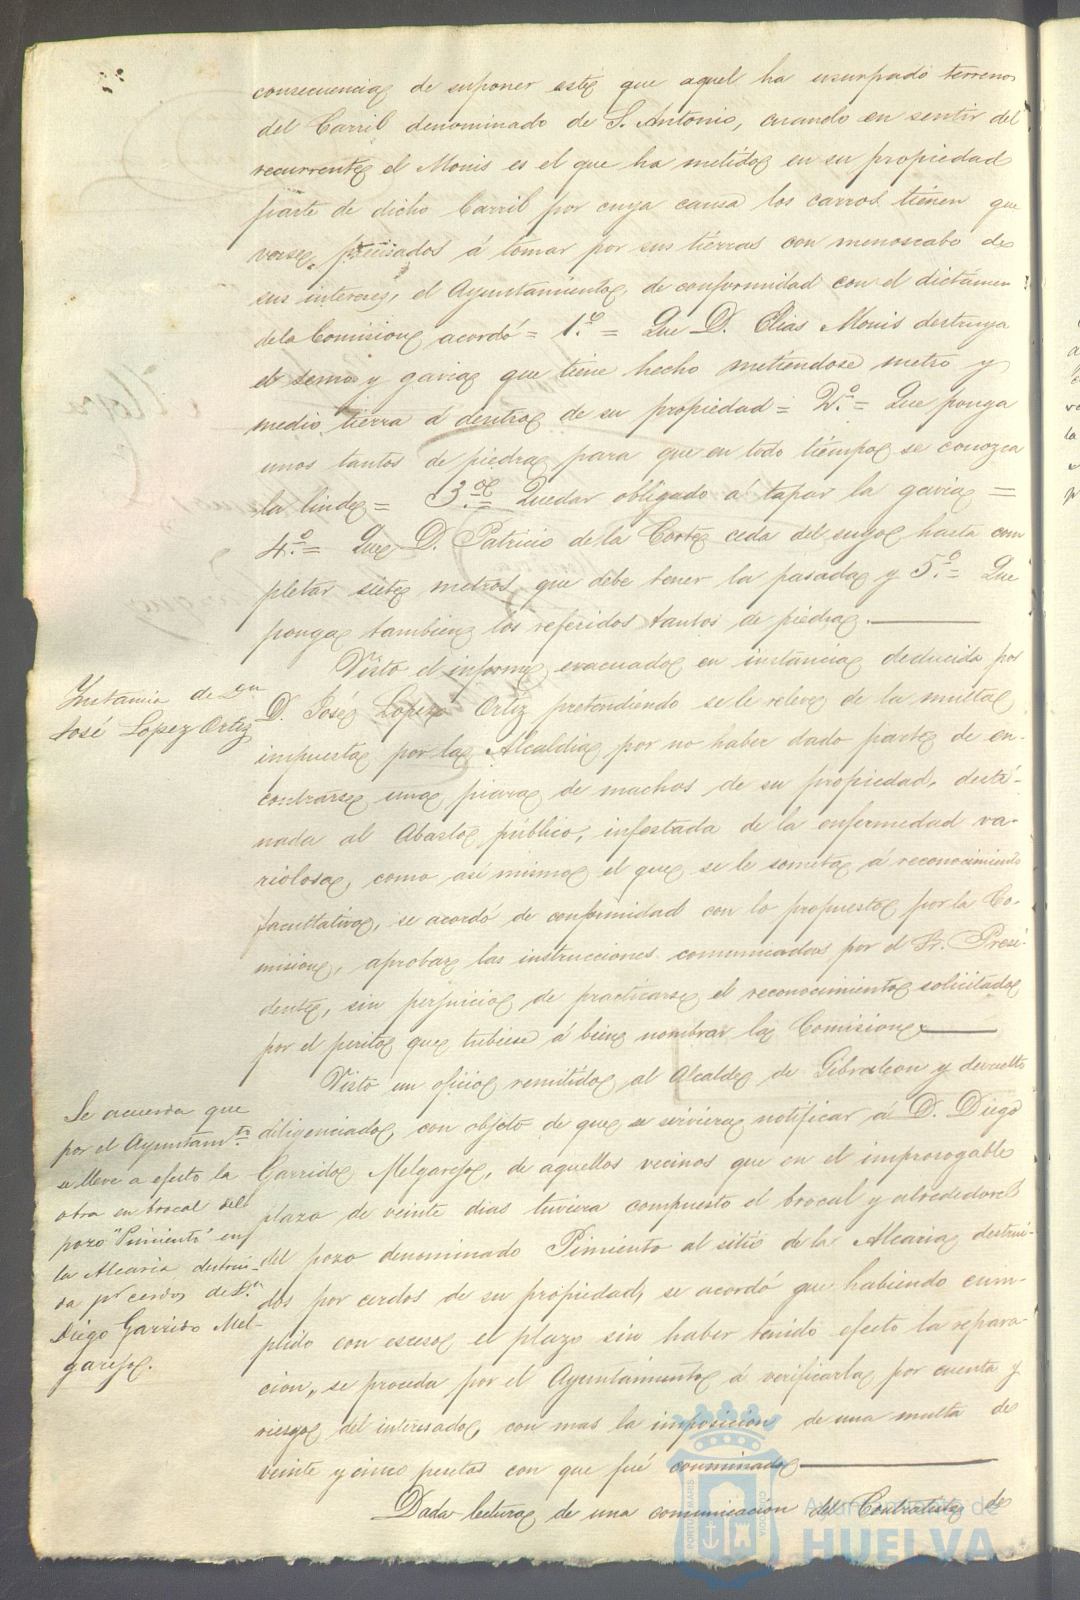 consecuencia de suponer este que aquel ha usurpado terrenos
del Carril denominado de S. Antonio, cuando en sentir del
recurrente el Monis es el que ha metido en su propiedad
parte de dicho Carril por cuya causa los carros tienen que
verse precisados á tomar por sus tierras con menoscabo de
sus intereses, el Ayuntamiento, de conformidad con el dictámen
de la Comision acordó = 1.º = Que D. Elias Monis destruya
el semo y gavia que tiene hecho metiendose metro y
medio tierra á dentro de su propiedad = 2.º = Que ponga
unos tantos de piedra para que en todo tiempo se conozca
la linde = 3.º = Quedar obligado á tapar la gavia =
4.º = Que D. Patricio de la Corte ceda del suyo hasta com
pletar siete metros que debe tener la pasada y 5.º = Que
ponga tambien los referidos tantos de piedra.
Instancia de Don
José Lopez Ortiz
Visto el informe evacuado en instancia deducida por
D. José Lopez Ortiz pretendiendo se le releve de la multa
impuesta por la Alcaldia por no haber dado parte de en-
contrarse una piara de machos de su propiedad, desti-
nada al Abasto público, infestada de la enfermedad va-
riolosa, como asi mismo el que se le someta á reconocimiento
facultativo, se acordó de conformidad con lo propuesto por la Co-
mision, aprobar las instrucciones comunicadas por el Sr. Presi-
dente, sin perjuicio de practicarse el reconocimiento solicitado
por el perito que tubiese á bien nombrar la Comision.
Se acuerda que
por el Ayuntam.to
se lleve a efecto la
obra en brocal del
pozo "Pimiento" en
la Alcaria destrui-
da pr cerdos de D.n
Diego Garrido Mel-
garejo.
Visto un oficio remitido al Alcalde de Gibraleon y devuelto
diligenciado, con objeto de que se sirviera notificar á D. Diego
Garrido Melgarejo, de aquellos vecinos que en el improrogable
plazo de veinte dias tuviera compuesto el brocal y alrededores
del pozo denominado Pimiento al sitio de la Alcaria destrui-
dos por cerdos de su propiedad, se acordó que habiendo cum-
plido con esceso el plazo sin haber tenido efecto la repara-
cion, se proceda por el Ayuntamiento á verificarla por cuenta y
riesgo del interesado, con mas la imposicion de una multa de
veinte y cinco pesetas con que fué conminado
Dada lectura de una comunicacion del Contratista de
Ayuntamiento de
HUELVA